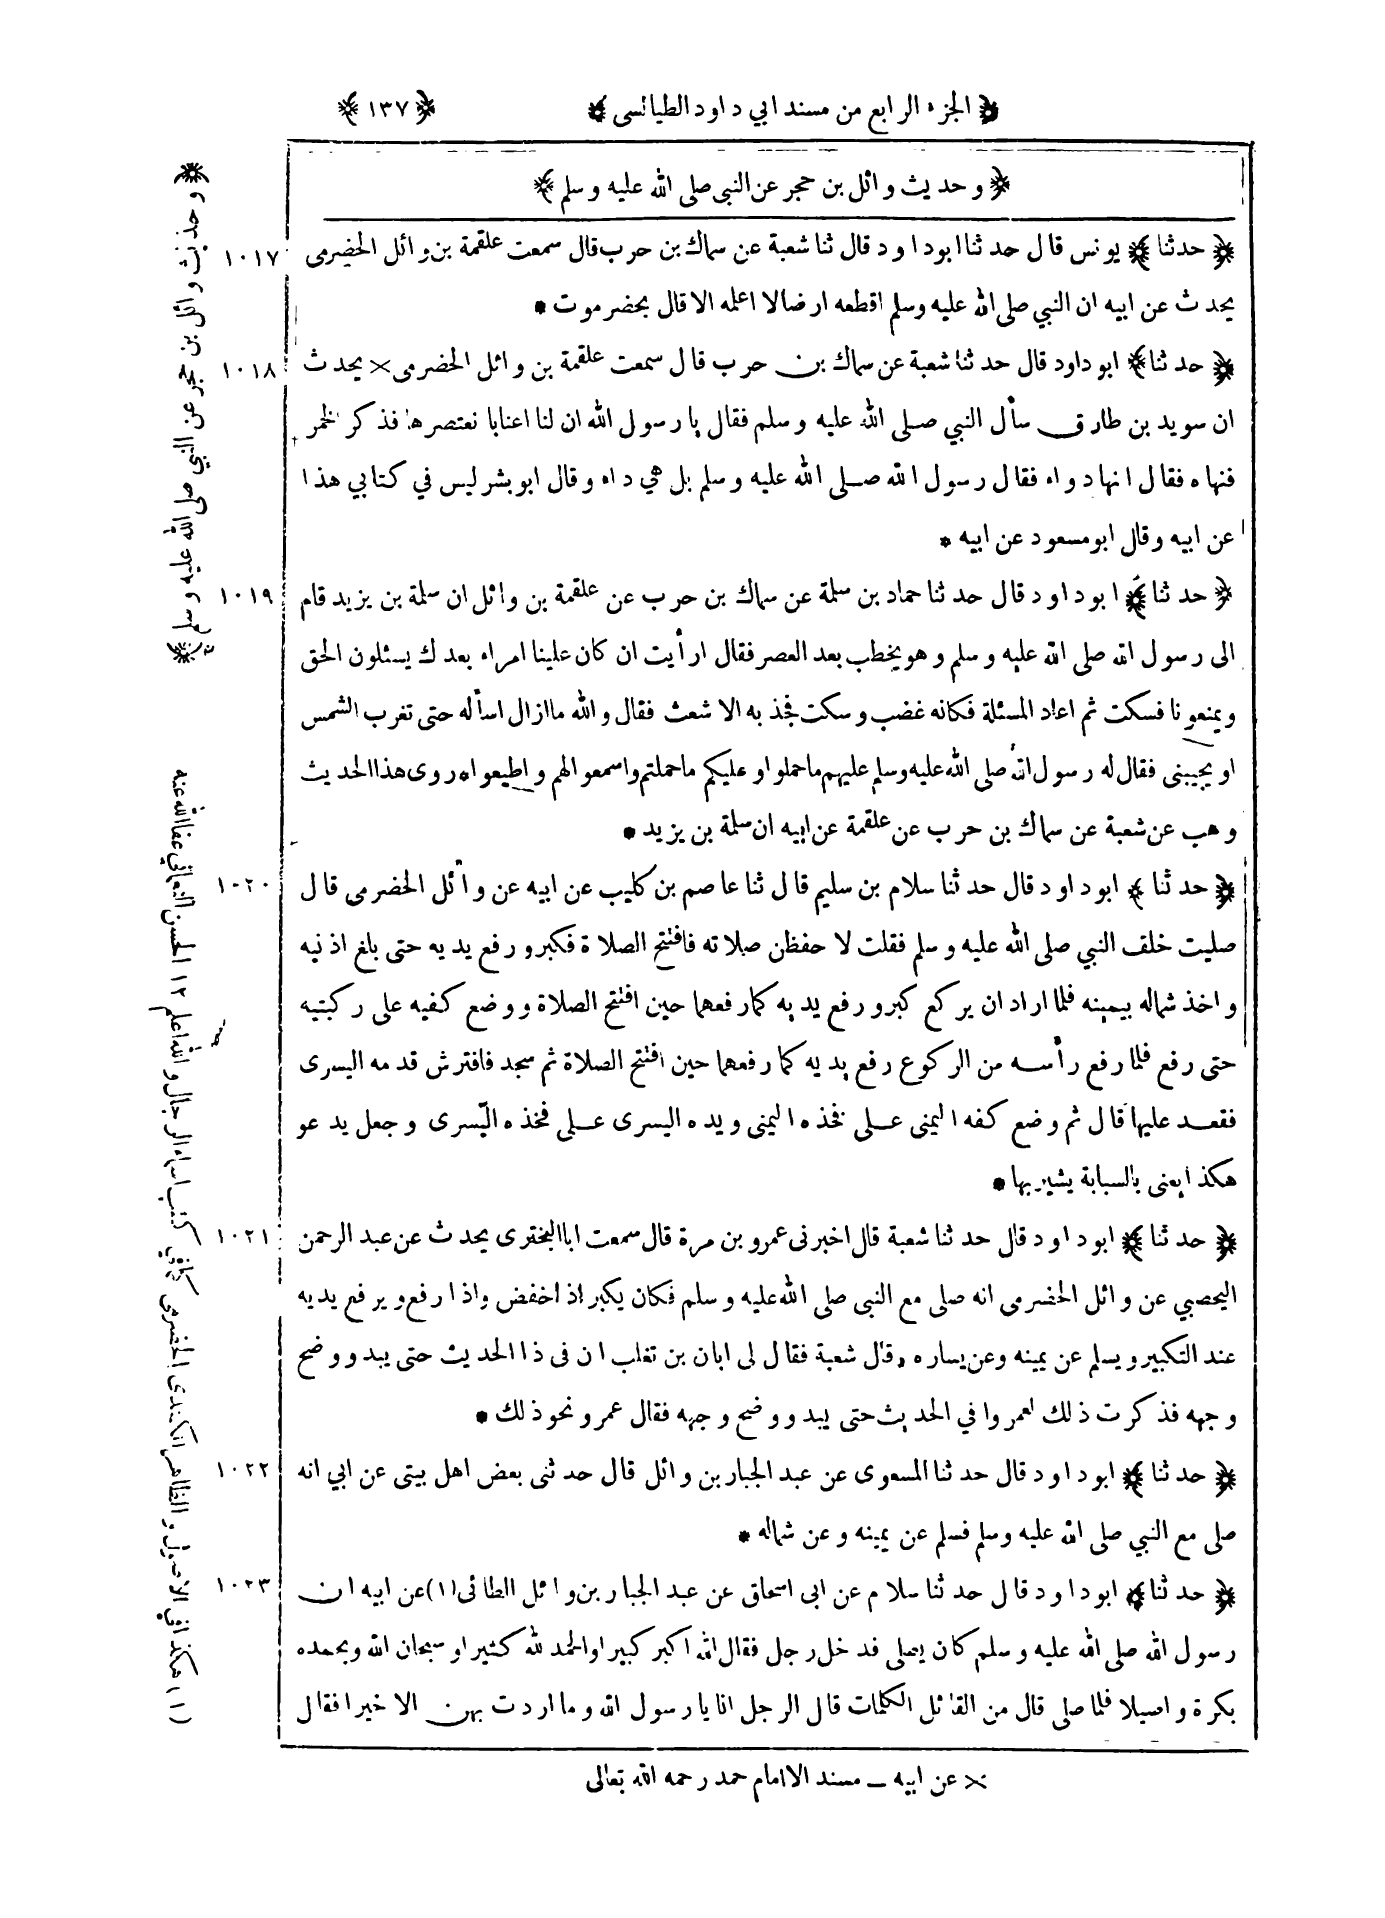 ﴿ الجزء الرابع من مسند ابي داود الطيالسى ﴾ ﴿ ١٣٧ ﴾
﴿ وحديث وائل بن حجر عن النبى صلى الله عليه وسلم ﴾
١٠١٧ ﴿ حدثنا ﴾ يونس قال حدثنا ابوداود قال ثنا شعبة عن سماك بن حرب قال سمعت علقمة بن وائل الحضرمى
يحدث عن ابيه ان النبي صلى الله عليه وسلم اقطعه ارضالا اعلمه الا قال بحضرموت *
١٠١٨ ﴿ حدثنا ﴾ ابوداود قال حدثنا شعبة عن سماك بن حرب قال سمعت علقمة بن وائل الحضرمى × يحدث
ان سويد بن طارق سأل النبي صلى الله عليه وسلم فقال يا رسول الله ان لنا اعنابا نعتصرها فذكر الخمر
فنهاه فقال انها دواء فقال رسول الله صلى الله عليه وسلم بل هي داء وقال ابوبشر ليس في كتابي هذا
عن ابيه وقال ابومسعود عن ابيه *
١٠١٩ ﴿ حدثنا ﴾ ابوداود قال حدثنا حماد بن سلمة عن سماك بن حرب عن علقمة بن وائل ان سلمة بن يزيد قام
الى رسول الله صلى الله عليه وسلم وهو يخطب بعد العصر فقال ارأيت ان كان علينا امراء بعدك يسئلون الحق
ويمنعونا فسكت ثم اعاد المسئلة فكانه غضب وسكت فجذبه الاشعث فقال والله ماازال اسأله حتى تغرب الشمس
او يجيبنى فقال له رسول الله صلى الله عليه وسلم عليهم ماحملوا وعليكم ماحملتم واسمعوا لهم واطيعوا * روى هذا الحديث
وهب عن شعبة عن سماك بن حرب عن علقمة عن ابيه ان سلمة بن يزيد *
١٠٢٠ ﴿ حدثنا ﴾ ابوداود قال حدثنا سلام بن سليم قال ثنا عاصم بن كليب عن ابيه عن وائل الحضرمى قال
صليت خلف النبي صلى الله عليه وسلم فقلت لا حفظن صلاته فافتتح الصلاة فكبر ورفع يديه حتى بلغ اذنيه
واخذ شماله بيمينه فلما اراد ان يركع كبر ورفع يديه كمارفعهما حين افتتح الصلاة ووضع كفيه على ركبتيه
حتى رفع فلما رفع رأسه من الركوع رفع يديه كما رفعهما حين افتتح الصلاة ثم سجد فافترش قدمه اليسرى
فقعد عليها قال ثم وضع كفه اليمنى على فخذه اليمنى ويده اليسرى على فخذه اليسرى وجعل يدعو
هكذا يعنى بالسبابة يشير بها *
١٠٢١ ﴿ حدثنا ﴾ ابوداود قال حدثنا شعبة قال اخبرنى عمرو بن مرة قال سمعت اباالبخترى يحدث عن عبد الرحمن
اليحصبي عن وائل الحضرمى انه صلى مع النبى صلى الله عليه وسلم فكان يكبر اذ اخفض واذا رفع ويرفع يديه
عند التكبير ويسلم عن يمينه وعن يساره * قال شعبة فقال لى ابان بن تغلب ان فى ذا الحديث حتى يبدو وضح
وجهه فذكرت ذلك لعمروا في الحديث حتى يبدو وضح وجهه فقال عمرو نحو ذلك *
١٠٢٢ ﴿ حدثنا ﴾ ابوداود قال حدثنا المسعوى عن عبد الجبار بن وائل قال حدثنى بعض اهل بيتى عن ابي انه
صلى مع النبي صلى الله عليه وسلم فسلم عن يمينه وعن شماله *
١٠٢٣ ﴿ حدثنا ﴾ ابوداود قال حدثنا سلام عن ابى اسحاق عن عبد الجبار بن وائل الطائى (١) عن ابيه ان
رسول الله صلى الله عليه وسلم كان يصلى فدخل رجل فقال الله اكبر كبيرا والحمد لله كثيرا وسبحان الله وبحمده
بكرة واصيلا فلما صلى قال من القائل الكلمات قال الرجل انا يا رسول الله وما اردت بهن الا خيرا فقال
× عن ابيه ــ مسند الامام احمد رحمه الله تعالى
﴿ وحديث وائل بن حجر عن النبي صلى الله عليه وسلم ﴾
(١) هكذا في الاصول والظاهر الكندى الحضرمى كما في كتب اسماء الرجال والله اعلم ١٢ الحسن النعماني عفا الله عنه